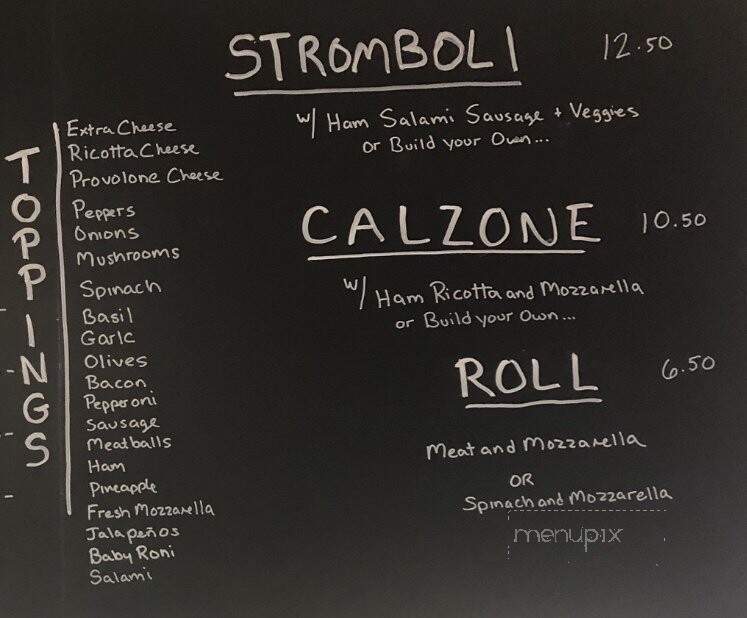 STROMBOLI 12.50
w/ Ham Salami Sausage + Veggies
or Build your Own...
CALZONE 10.50
w/ Ham Ricotta and Mozzarella
or Build your Own...
ROLL 6.50
Meat and Mozzarella
OR
Spinach and Mozzarella
TOPPINGS
Extra Cheese
Ricotta Cheese
Provolone Cheese
Peppers
Onions
Mushrooms
Spinach
Basil
Garlc
Olives
Bacon
Pepperoni
Sausage
Meatballs
Ham
Pineapple
Fresh Mozzarella
Jalapeños
Baby Roni
Salami
menupix